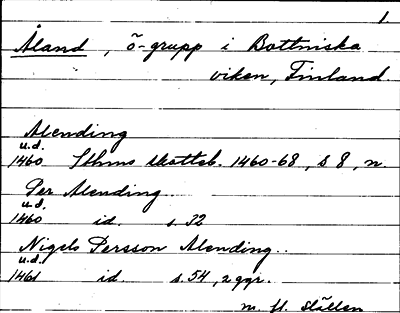 1
Åland, ö-grupp i Bottniska
viken, Finland
Alending
u.d.
1460 Sthms skotteb. 1460-68, s 8, n.
Per Alending..
u.d.
1460 id. s. 32
Nigels Persson Alending..
u.d.
1461 id. s. 54, 2 ggr.
m. fl. ställen